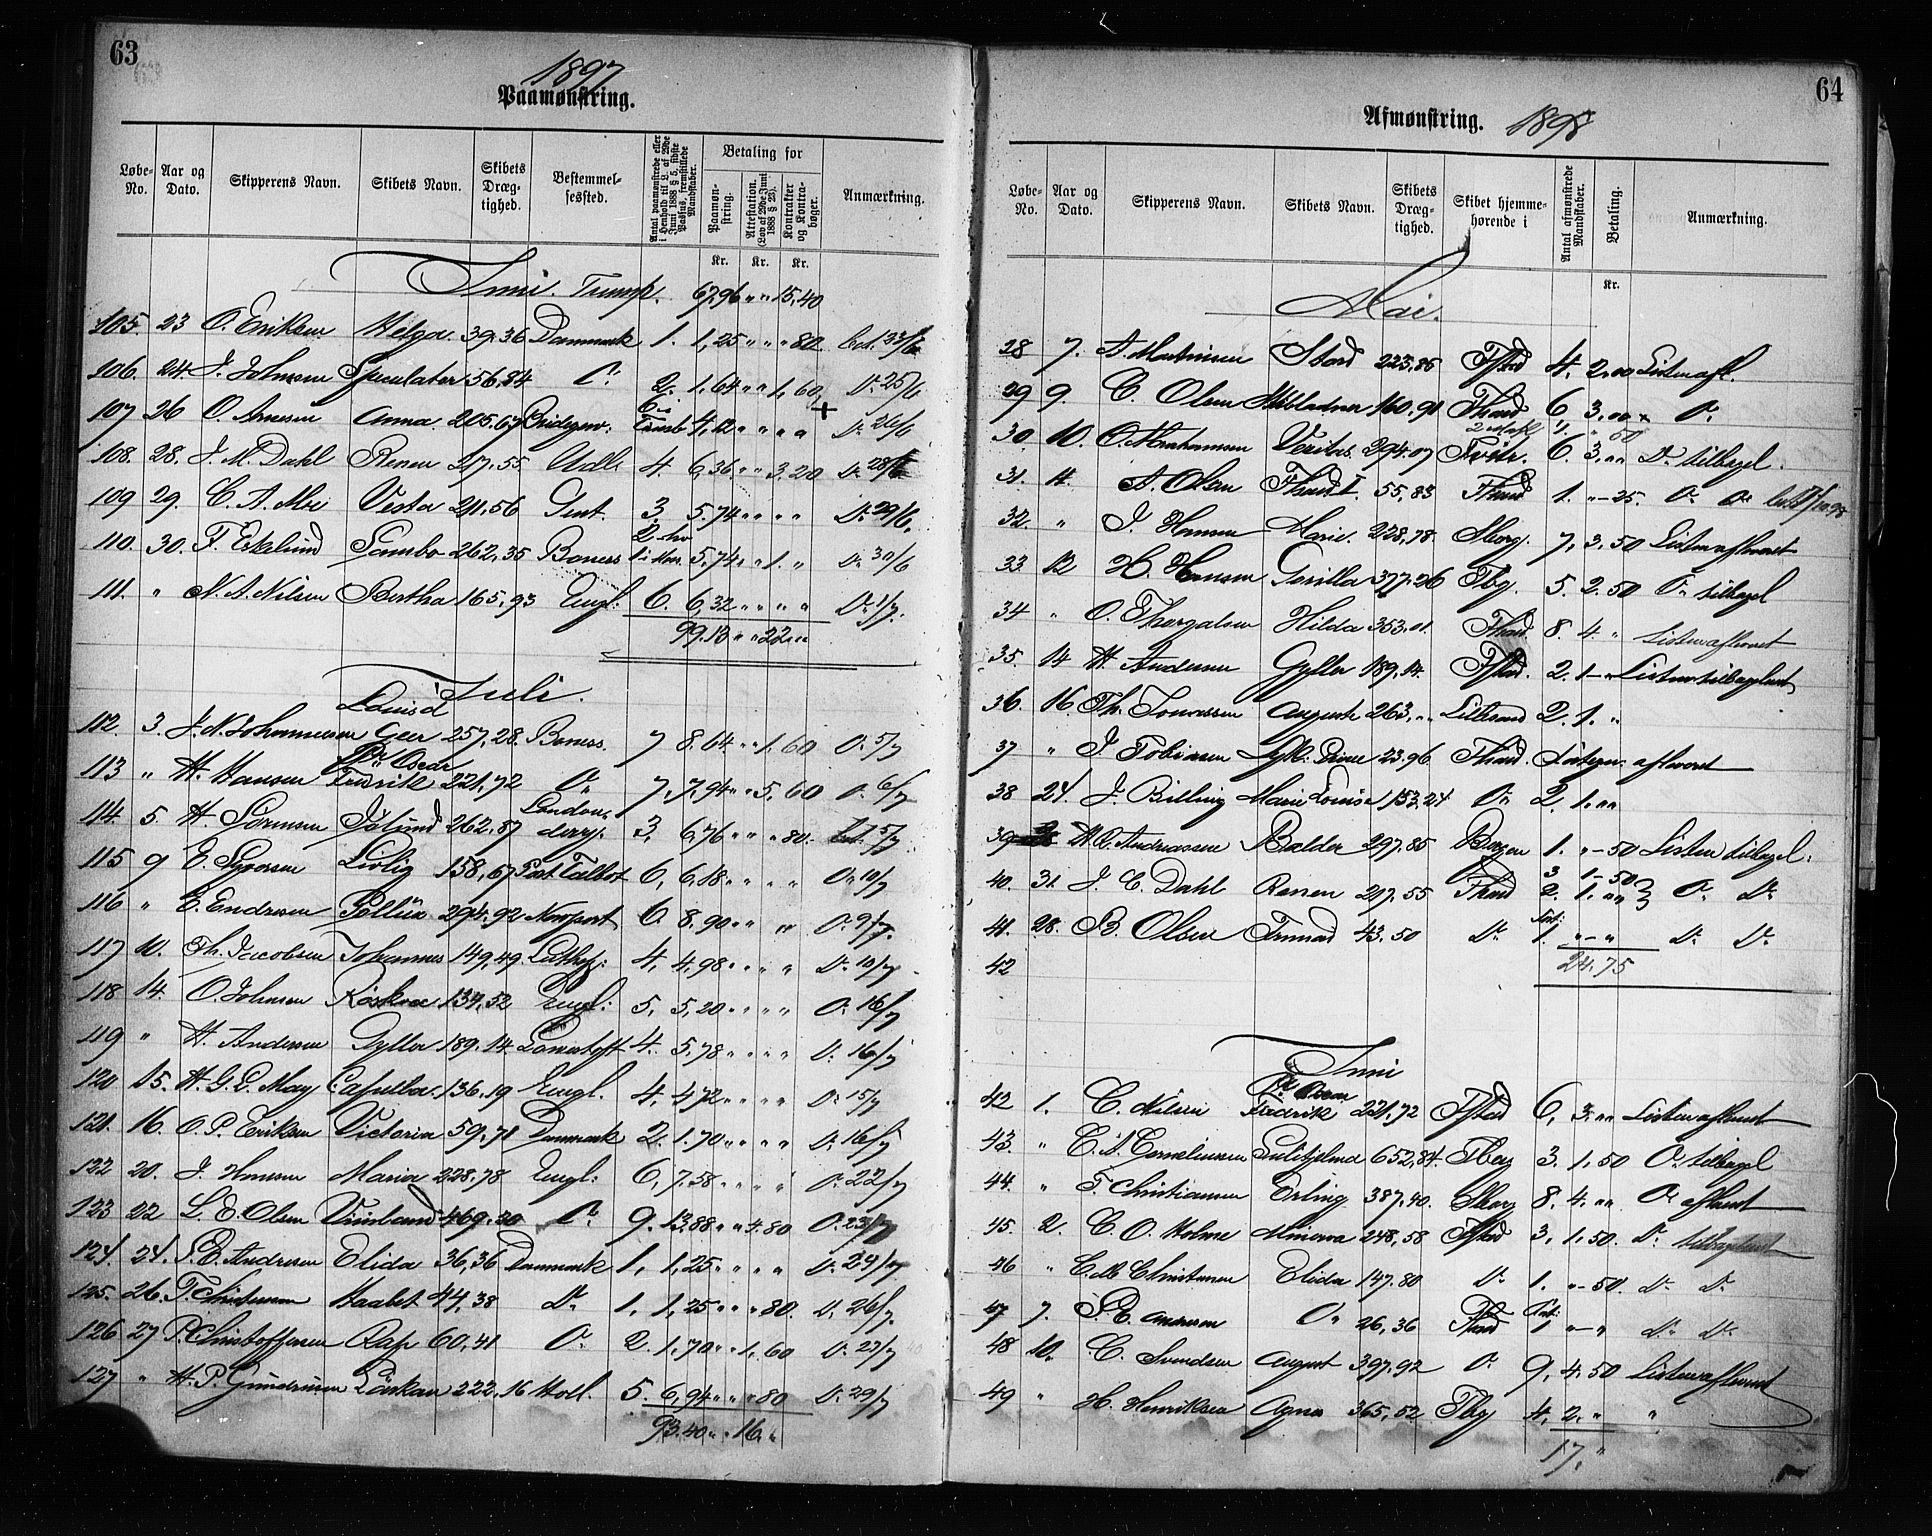 63
1897
Paamønstring.
Løbe-No. Aar og Dato. Skipperens Navn. Skibets Navn. Skibets Dræg-tighed. Bestemmel-sessted. Antal paamønstrede eller i Henhold til L. af 29de Juni 1888 § 5, sidste Passus, fremstillede Mandskaber. Betaling for Paamøn-string. Attestation. (Lov af 29de Juni 1888 § 23). Kontrakter og Kontra-bøger. Anmærkning.
Kr. Kr. Kr.
Juni. Transp. 67,96 " " 15,40
105. 23 O. Eriksen Helga 39,36 Danmark 1. 1,25 " " " 80
106. 24. J. Johnsen Speculater 56,84 Do 2. 1,64 " " 1,60 Do 25/6
107 26 O. Arnesen Anna 205,67 6 4,12 " " " " Do 26/6
108. 28. J. M. Dahl Renen 217.55 Udl. 4 6,36 " " 3.20 Do 28/6
109 29. C. A. Moe Vesta 211,56 Gent. 3. 5.74 " " " " Do 29/6
110. 30. F. Eklund Sambo 262,35 Boness 5,74 " " 1. " Do 30/6
111. " N. A. Nilsen Bertha 165,93 Engl: 6. 6,32 " " " " Do 1/7.
99.13 " " 22 " "
Juli.
112. 3. J. N. Johannesen Louis d Geer 257,28. Boness. 7 8.64 " " 1.60 Do 5/7
113 " H. Hansen Pr. Oscar Fredrik 221,72 Do 7, 7,94 " " 5,60 Do 6/7
114. 5. H. Sørensen 262,87 London derry. 3, 6,76 " " " 80.
115 9 E. Syvorsen Livlig 158,67 Port Talbot 6, 6,18 " " " " Do 10/7
116 " E. Endresen Pollux 294.92 Newport 6. 8.90 " " " " Do 9/7.
117 10. Th. Jacobsen Johannes 149,49 4, 4,98 " " " " Do 10/7
118 14. O. Johnsen 134,52 Engl: 5, 5,20 " " " " Do 16/7
119 " H. Andersen Gyller 189.14. Lowestoft 4. 5.78 " " " " Do 16/7
120 15. H. G. L. May Capella 136.19 Engl. 4, 4,72 " " " " Do 15/7
121. 16. O. P. Eriksen Victoria 59,71 Danmark 2. 1.70 " " " " Do 16/7
122 20. J. Hansen Maria 228.78 Engl: 6, 7.58 " " " " Do 22/7
123 22 L. E. Olsen 469.30 Do 9. 13,88 " " 4.80 Do 23/7
124. 24. P. E. Andresen Elida 36,36 Danmark 1, 1,25 " " " " Do 24/7
125. 26. Haabet 44,38 Do 1, 1,25 " " " 80. Do 26/7
126 27 P. Christoffersen Rap 60,41 Do 2. 1,70 " " 1,60 Do 27/7
127 " H. P. Gundersen 222,16 Holl. 5. 6,94 " " " 80 Do 29/7
93.40 " " 16. "
64
Afmønstring. 1898
Løbe-No. Aar og Dato. Skipperens Navn. Skibets Navn. Skibets Dræg-tighed. Skibet hjemme-hørende i Antal afmønstrede Mandskaber. Betaling. Anmærkning.
Kr.
Mai.
28 7. A. Martinsen Stord 223,86 Fstad 4. 2,00 Listen afl.
29 9. C. Olsen 160.91 Thand 6. 3,00 Do
30. 10. O. Abrahamsen Veritas 294.07 6. 3," " Do tilbagel.
31. 11. A. Olsen Thand I. 55,83 Thand 1. " - 25. Do Do
32. " J. Hansen Marie 228,78 Sborg. 7, 3,50 Listen afleveret
33. 12 H. Hansen Gorilla 377.26 Tbg. 5. 2.50 Do tilbagel
34 " O. Thorgalsen Hilda 353.01. Thand. 8. 4 " Listen afleveret
35. 14 H. Andersen Gyller 189,14. Fstad. 2. 1- " Listen tilbagelevt
36. 16 Th. Tomassen Auguste 263," " Lillesand 2. 1. "
37 " J. Tobiasen 23.96 Thand. Listen afleveret
38 24. J. Billing Marie Louise 153,24 Do 2. 1. " "
39 Andreassen Balder 297.85 Bergen 1. " - 50 Listen tilbagel.
40. 31. J. C. Dahl Renen 217.55 Thand 3 1-50 2. 1. " " Do Do
41. 28. B. Olsen 43.50 Do 1. " - " Do Do
42 24.75
Juni
42 1. C. Nilsen Pr. Oscar Fredrik 221,72 Fstad 6, 3," " Listen afleveret
43. " C. A. Corneliussen Sulitjelma 652,84. Tberg 3. 1,50 Do tilbagel
44. " F. Christiansen Erling 387,40. Sborg 8, 4. " " Do aflevert
45. 2. C. O. Holme Minerva 248,58 Fstad 3, 1,50. Do tilbagelevert
46 " C. M. Christensen Elida 147.80 Do 1. " - 50. Do Do
47 7. P. E. Andresen Do 26,36 Thand 1 " - " Do Do
48 10. C. Svendsen August 397,92 Do 9, 4,50 Listen afleveret
49 " H. Henriksen Agnes 365,52 Tbg 4, 2. " "
17, "